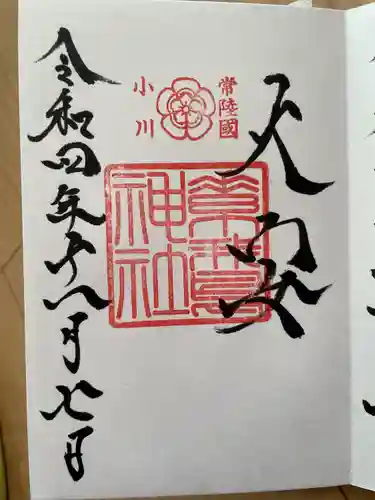 常陸國
小川
天安
素鵞
神社
令和四年
月七日